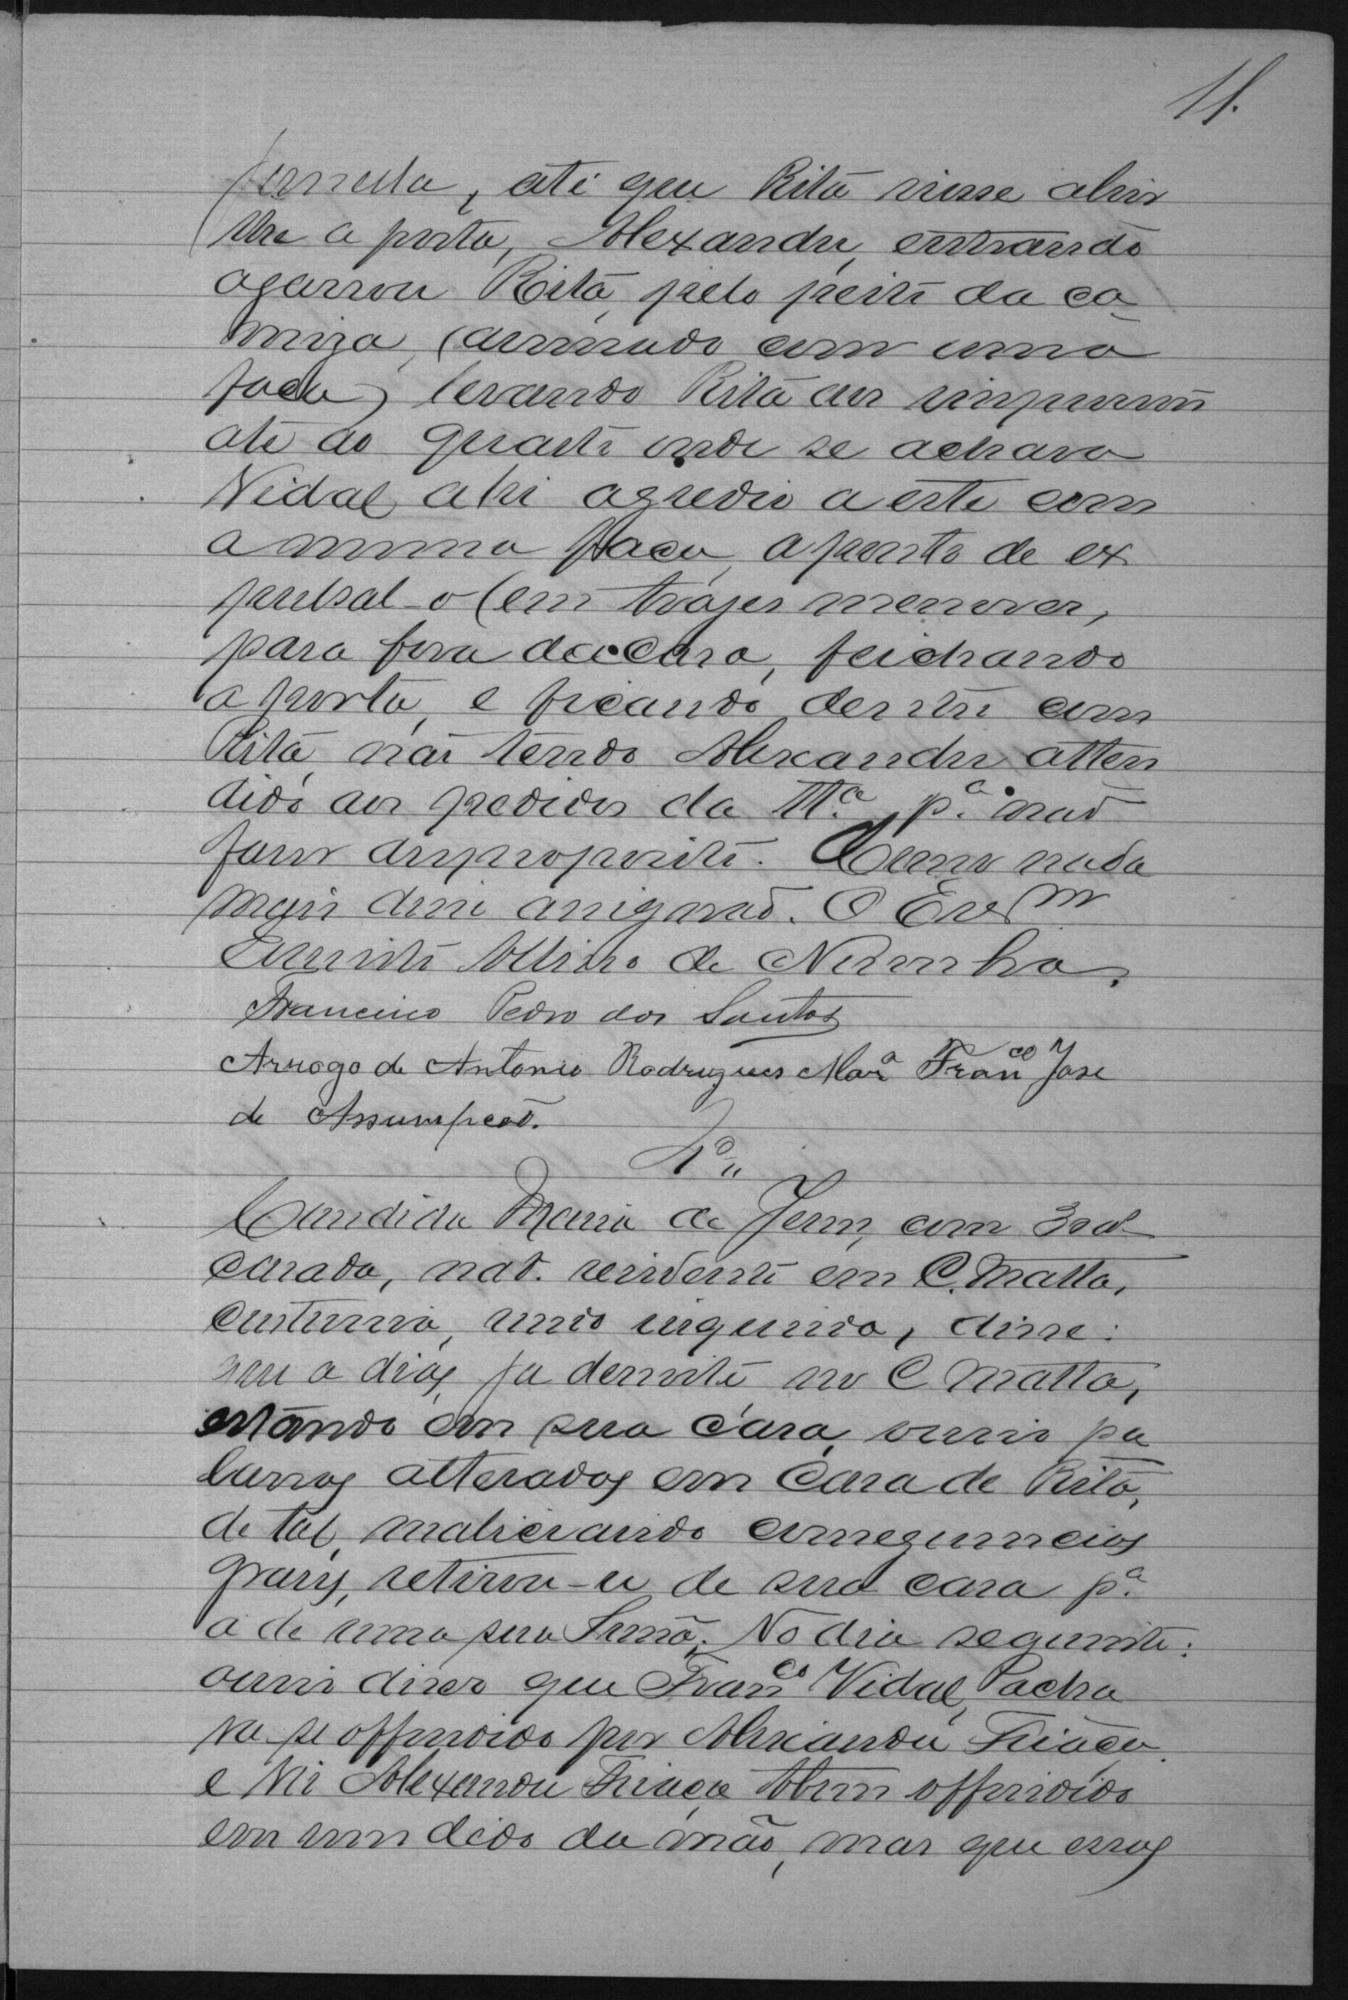 11.
janella, até que Rita viesse abrir
lhe a porta, Alexandre, entrando
agarrou Rita, pelo peito da ca
miza, (armado com uma
faca) levando Rita aos empurrões
até ao quarto onde se achava
Vidal, ahi agredio a este com
a mesma faca, a ponto de ex
pulsal-o (em trajes menores,
para fora da casa, feichando
a porta, e ficando dentro com
Rita, não tendo Alexandre atten
dido aos pedidos da Ttª. pª. não
fazer desproposito. E como nada
mais disse assignão. O Escrm
Evaristo Albino de Noronha.
Francisco Pedro dos Santos
Arrogo de Antonio Rodrigues Mara Franco Jose
de Assumpcaõ.
Candida Maria de Jesus, com 30 as
casada, nat. residente em C. Matta,
custureira, sendo inquirida, disse:
que a dias, ja de noite no C Matta,
estando em sua casa, ouvio pa
lavras alteradas em casa de Rita,
de tal, maliciando consequencias
graves, retirou-se de sua casa pª.
a de uma sua Irmã. No dia seguinte:
ouvio dizer que Franco Vidal, achava
va se offendido por Alexandre Friaça
e vio Alexandre Friaça offendido
em um dedo da mão, mas que essas